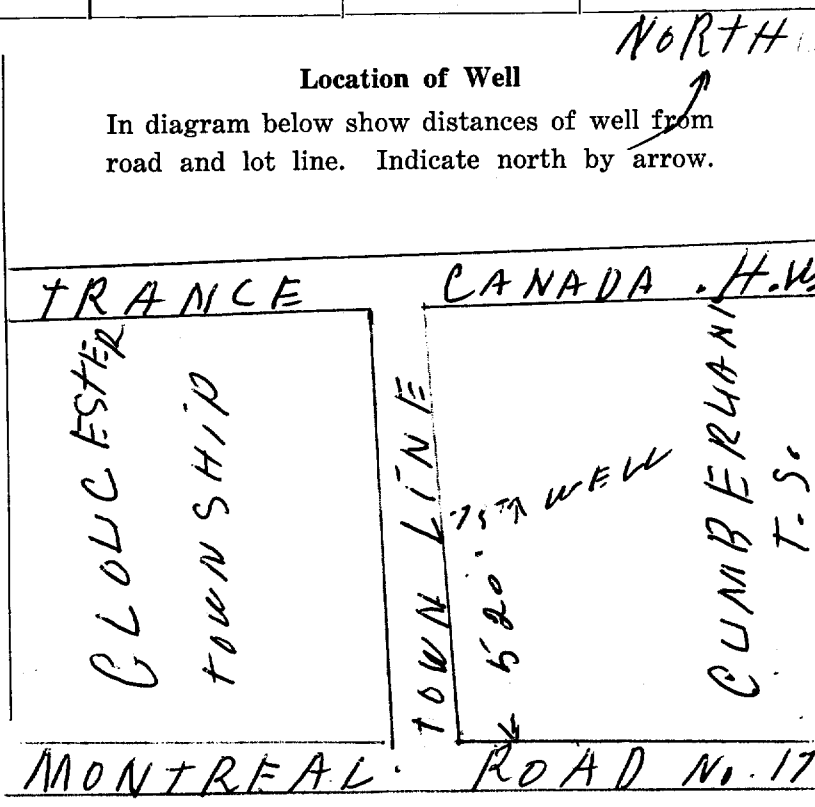 NORTH
Location of Well
In diagram below show distances of well from
road and lot line. Indicate north by arrow.
TRANCE CANADA . H.W.
GLOUCESTER
TOWNSHIP
TOWN LINE
75' WELL
520'
CUMBERLAND
T.S.
MONTREAL. ROAD No. 17